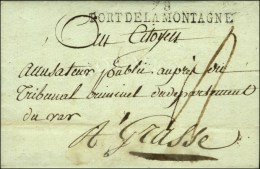 8
PORT DE LA MONTAGNE
Au Citoyen
accusateur public auprès du
Tribunal criminel du departement
du var
A Grasse